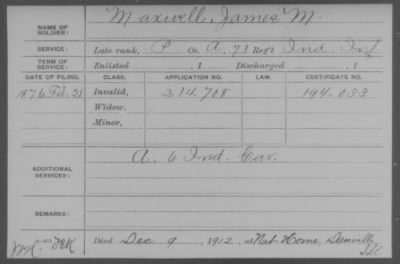 NAME OF SOLDIER: Maxwell, James M.
SERVICE: Late rank, P Co. A, 71 Reg't Ind. Inf
TERM OF SERVICE: Enlisted , 1 Discharged , 1
DATE OF FILING. CLASS. APPLICATION NO. LAW. CERTIFICATE NO.
1876 Feb. 21 Invalid, 214.708 194.033
Widow,
Minor,
ADDITIONAL SERVICES: A. 6 Ind. Cav.
REMARKS:
Died Dec 9, 1912, at Nat. Home, Danville,
Ill.